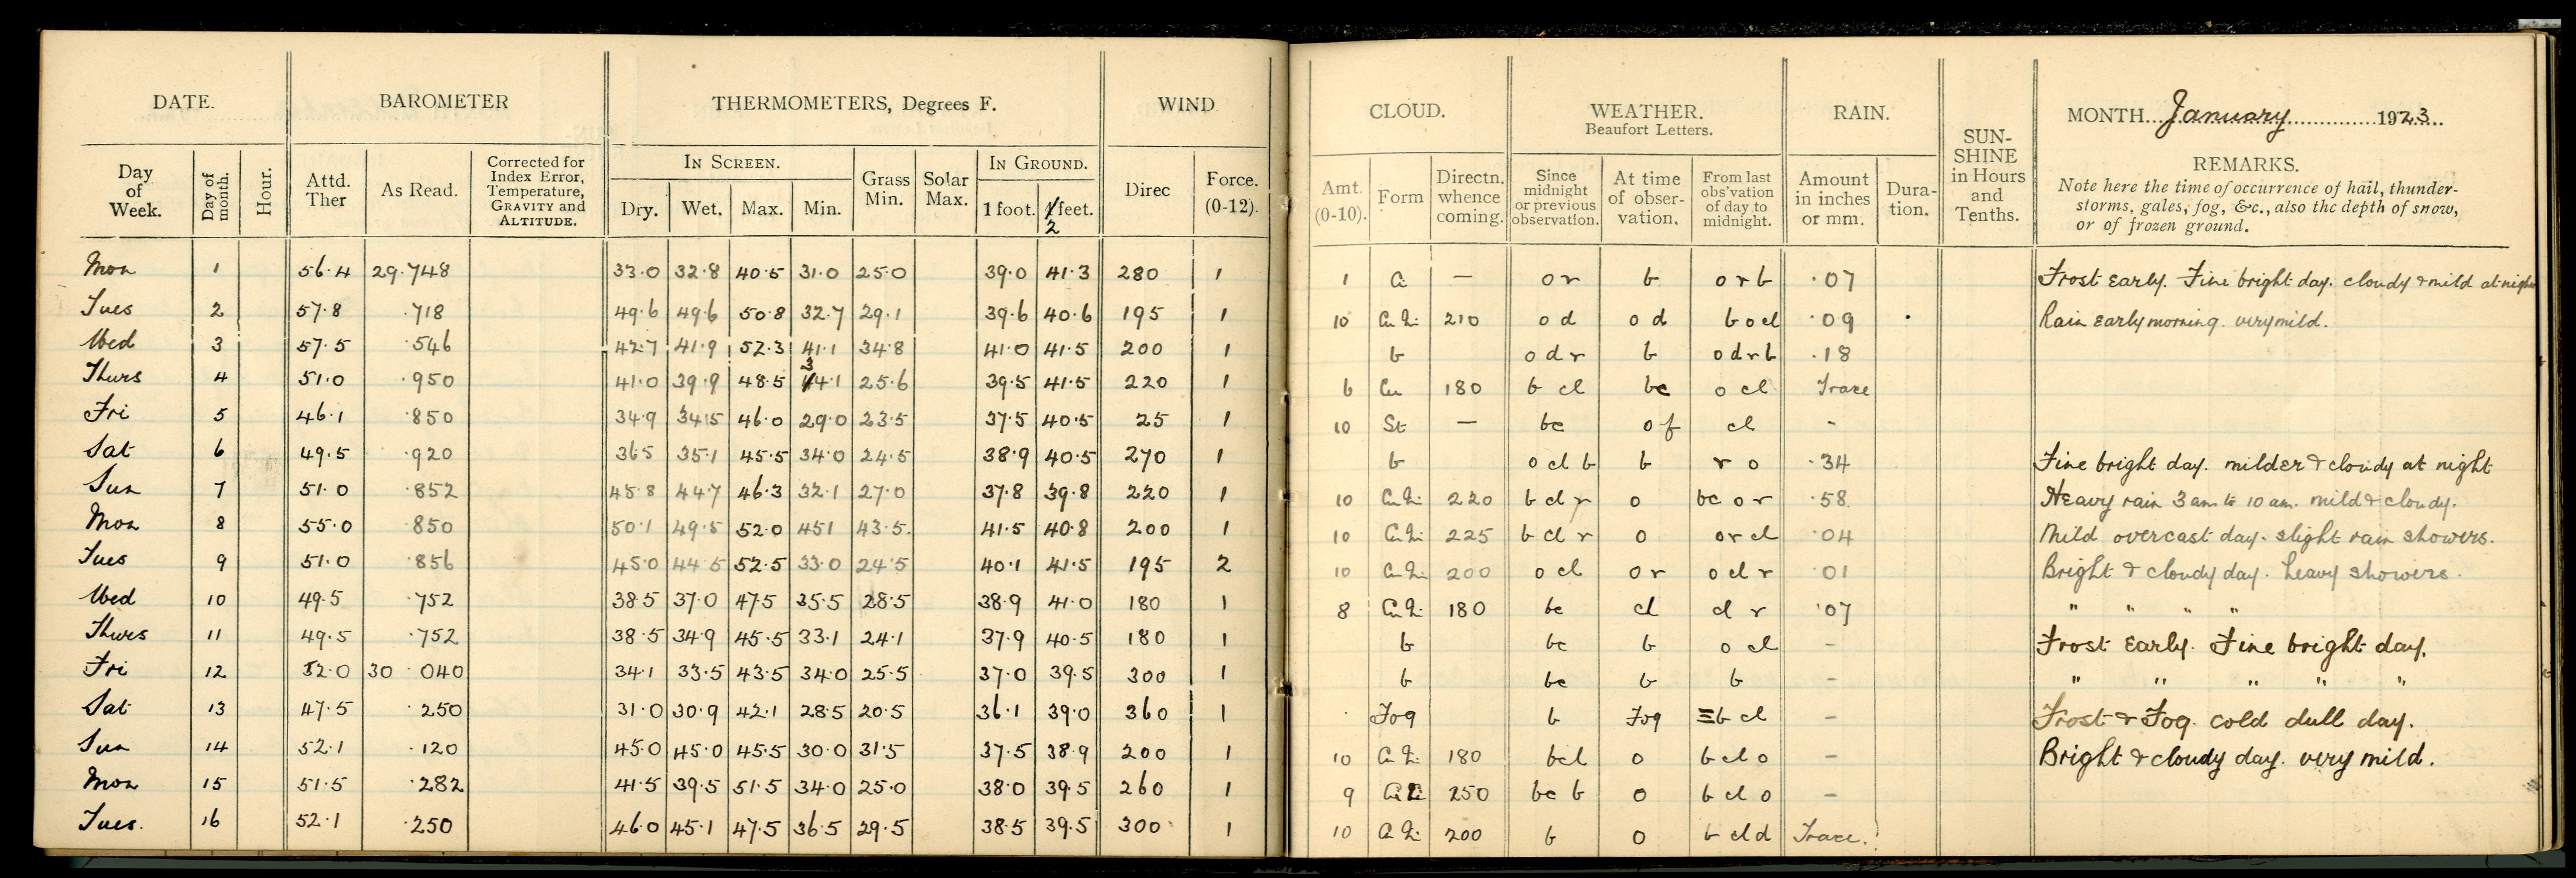 DATE. BAROMETER THERMOMETERS, Degrees F. WIND CLOUD. WEATHER. Beaufort Letters. RAIN. SUN-SHINE in Hours and Tenths. MONTH January 1923
Day of Week. Day of month. Hour. Attd. Ther As Read. Corrected for Index Error, Temperature, GRAVITY and ALTITUDE. IN SCREEN. Dry. Wet. Max. Min. Grass Min. Solar Max. IN GROUND. 1 foot. 2 feet. Direc Force. (0-12). Amt. (0-10). Form Directn. whence coming. Since midnight or previous observation. At time of obser-vation. From last obs'vation of day to midnight. Amount in inches or mm. Dura-tion. REMARKS.
Note here the time of occurrence of hail, thunder-
storms, gales, fog, &c., also the depth of snow,
or of frozen ground.
Mon 1 56.4 29.748 33.0 32.8 40.5 31.0 25.0 39.0 41.3 280 1 1 Ci — o r b o r b .07 Frost Early. Fine bright day. cloudy & mild at night
Tues 2 57.8 .718 49.6 49.6 50.8 32.7 29.1 39.6 40.6 195 1 10 210 o d o d b o cl .09 Rain Early morning. very mild.
Wed 3 57.5 .546 42.7 41.9 52.3 41.1 34.8 41.0 41.5 200 1 b o d r b o d r b .18
Thurs 4 51.0 .950 41.0 39.9 48.5 34.1 25.6 39.5 41.5 220 1 6 Cu 180 b cl bc o cl Trace
Fri 5 46.1 .850 34.9 34.5 46.0 29.0 23.5 37.5 40.5 25 1 10 St — bc o f cl -
Sat 6 49.5 .920 36.5 35.1 45.5 34.0 24.5 38.9 40.5 270 1 b o cl b b r o .34 Fine bright day. milder & cloudy at night
Sun 7 51.0 .852 45.8 44.7 46.3 32.1 27.0 37.8 39.8 220 1 10 220 b cl r o bc o r .58 Heavy rain 3 am to 10 am. mild & cloudy.
Mon 8 55.0 .850 50.1 49.5 52.0 45.1 43.5. 41.5 40.8 200 1 10 225 b cl r o o r cl .04 Mild overcast day. slight rain showers.
Tues 9 51.0 .856 45.0 44.5 52.5 33.0 24.5 40.1 41.5 195 2 10 200 o cl o r o cl r .01 Bright & cloudy day. heavy showers.
Wed 10 49.5 .752 38.5 37.0 47.5 35.5 28.5 38.9 41.0 180 1 8 180 bc cl cl r .07 " " " "
Thurs 11 49.5 .752 38.5 34.9 45.5 33.1 24.1 37.9 40.5 180 1 b bc b o cl - Frost Early. Fine bright day.
Fri 12 52.0 30 .040 34.1 33.5 43.5 34.0 25.5 37.0 39.5 300 1 b bc b b - " " " " "
Sat 13 47.5 .250 31.0 30.9 42.1 28.5 20.5 36.1 39.0 360 1 Fog b Fog ≡ b cl - Frost & Fog. cold dull day.
Sun 14 52.1 .120 45.0 45.0 45.5 30.0 31.5 37.5 38.9 200 1 10 180 bcl o b cl o - Bright & cloudy day. very mild.
Mon 15 51.5 .282 41.5 39.5 51.5 34.0 25.0 38.0 39.5 260 1 9 250 bc b o b cl o -
Tues. 16 52.1 .250 46.0 45.1 47.5 36.5 29.5 38.5 39.5 300 1 10 200 b o b cl d Trace.